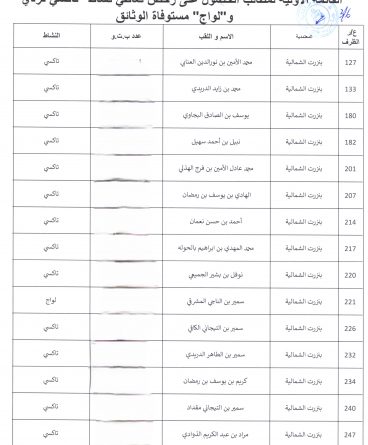 القائمة الأولية لمطالب الحصول على رخص تعاطي نشاط "تاكسي فردي"
و"لواج" مستوفاة الوثائق
3/6
ع/ر الظرف المعتمدية الاسم و اللقب عدد ب.ت.و النشاط
127 بنزرت الشمالية محمد الأمين بن نورالدين العناني تاكسي
133 بنزرت الشمالية محمد بن زايد الدريدي تاكسي
180 بنزرت الشمالية يوسف بن الصادق البجاوي تاكسي
182 بنزرت الشمالية نبيل بن أحمد سهيل تاكسي
201 بنزرت الشمالية محمد عادل الأمين بن فرج الهذلي تاكسي
207 بنزرت الشمالية الهادي بن يوسف بن رمضان تاكسي
214 بنزرت الشمالية أحمد بن حسن نعمان تاكسي
217 بنزرت الشمالية محمد المهدي بن ابراهيم بالحوله تاكسي
220 بنزرت الشمالية نوفل بن بشير الجميعي تاكسي
221 بنزرت الشمالية سمير بن الناجي المشرقي لواج
226 بنزرت الشمالية سمير بن التيجاني الكافي تاكسي
232 بنزرت الشمالية سمير بن الطاهر الدريدي تاكسي
234 بنزرت الشمالية كريم بن يوسف بن رمضان تاكسي
240 بنزرت الشمالية سمير بن التيجاني مقداد تاكسي
247 بنزرت الشمالية مراد بن عبد الكريم الذوادي تاكسي